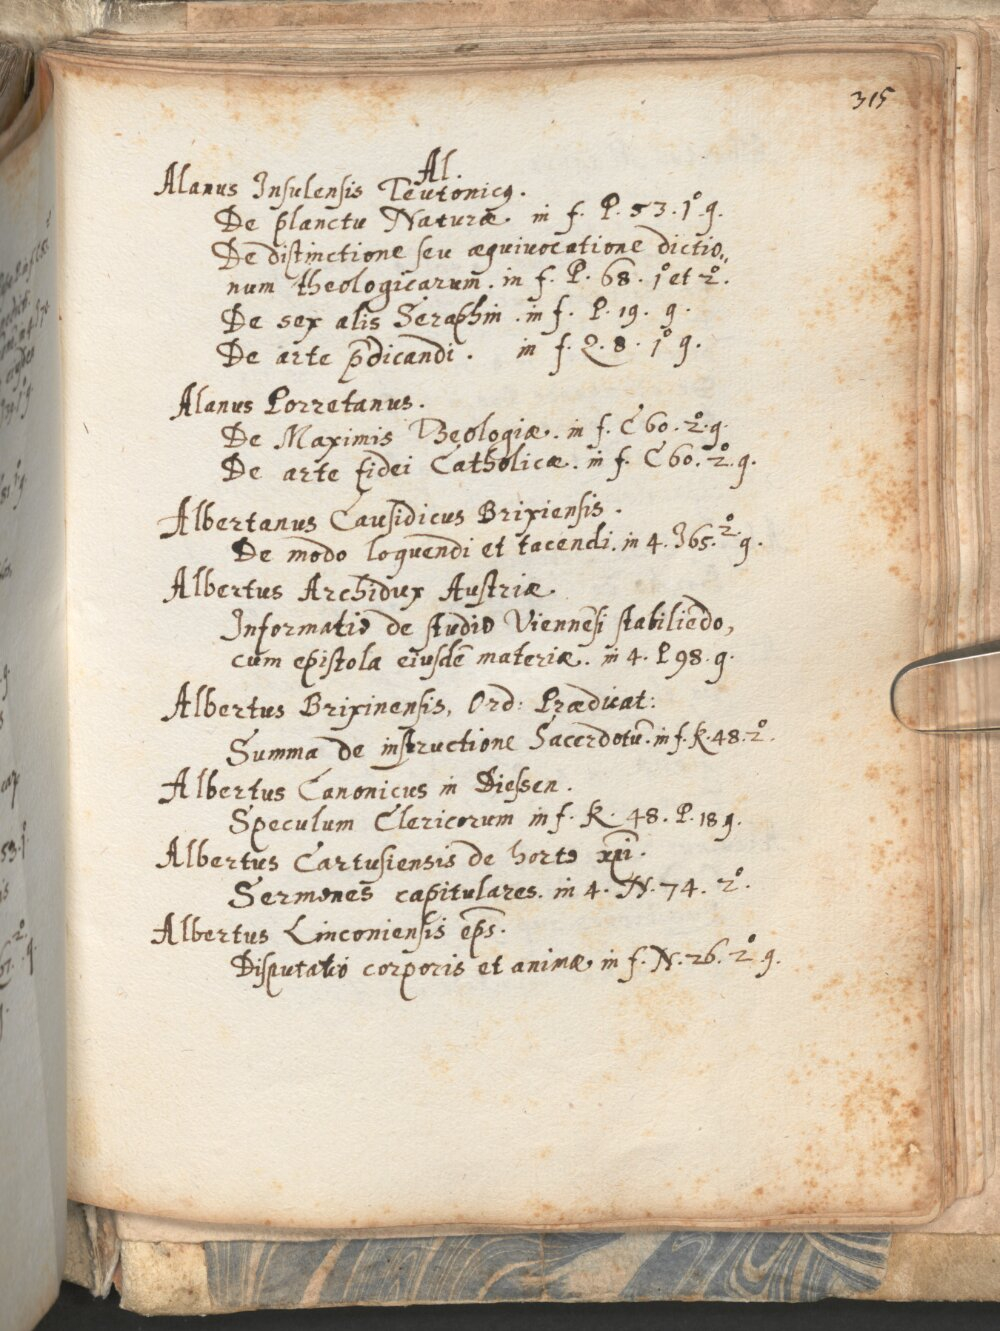 315
Al.
Alanus Insulensis Teutonicꝯ.
De planctu Naturæ. in f. P. 53. 1º. g.
De distinctione seu æquiuocatione dictio„
num theologicarum. in f. P. 68. 1º et 2º.
De sex alis Seraphin. in f. P. 19. g.
De arte p̄dicandi. in f. Q. 8. 1º g.
Alanus Porretanus.
De Maximis Theologiæ. in f. C 60. 2º. g.
De arte fidei Catholicæ. in f. C 60. 2º. g.
Albertanus Causidicus Brixiensis.
De modo loquendi et tacendi. in 4. J65. 2º g.
Albertus Archidux Austriæ.
Informatio de studio Viennēsi stabiliēdo,
cum epistola eiusdē materiæ. in 4. P 98. g.
Albertus Brixinensis, Ord: Prædicat:
Summa de instructione Sacerdotū. in f. K. 48. 2º.
Albertus Canonicus in Diessen.
Speculum Clericorum in f. K. 48. P. 18 g.
Albertus Cartusiensis de horto xp̄i.
Sermones capitulares. in 4. N. 74. 2º.
Albertus Linconiensis ep̄s.
Disputatio corporis et animæ in f. N. 26. 2º g.